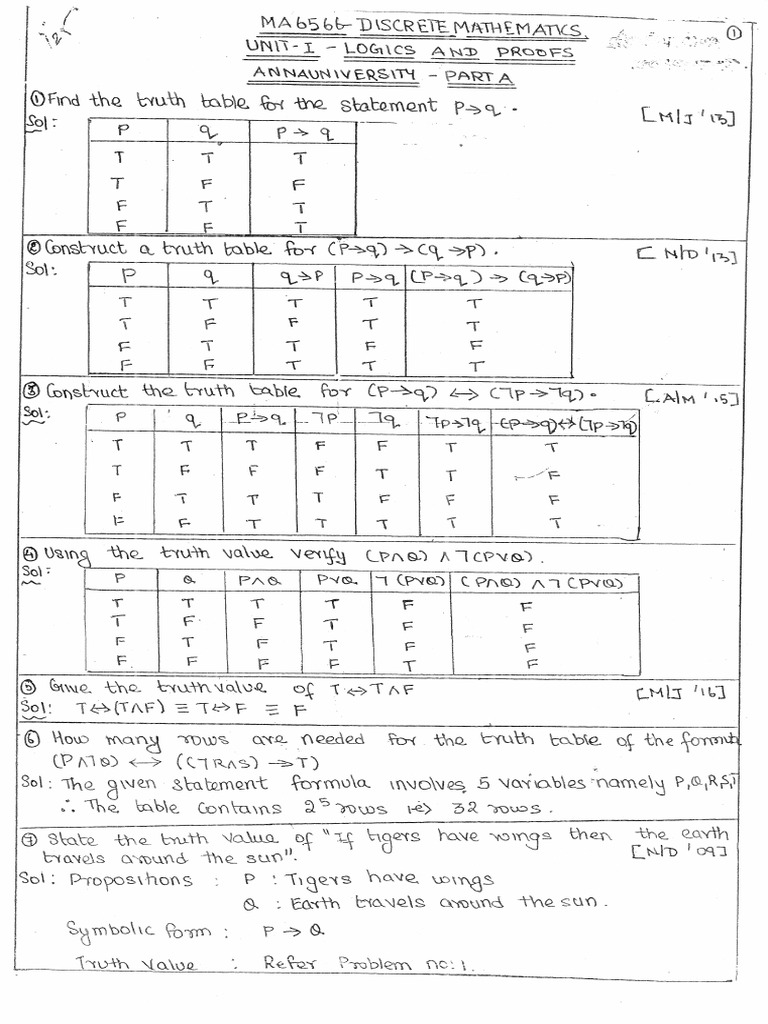 MA6566-DISCRETE MATHEMATICS.
①
UNIT-I - LOGICS AND PROOFS
ANNAUNIVERSITY - PART A
① Find the truth table for the statement P→q. [M/J '13]
Sol:
P q P→q
T T T
T F F
F T T
F F T
② Construct a truth table for (P→q) → (q→P). [N/D '13]
Sol:
P q q→P P→q (P→q) → (q→P)
T T T T T
T F F T T
F T T F F
F F T T T
③ Construct the truth table for (P→q) ↔ (¬P→¬q). [A/M '15]
Sol:
P q P→q ¬P ¬q ¬P→¬q (P→q)↔(¬P→¬q)
T T T F F T T
T F F F T T F
F T T T F F F
F F T T T T T
④ Using the truth value verify (P∧Q) ∧ ¬(P∨Q).
Sol:
P Q P∧Q P∨Q ¬(P∨Q) (P∧Q) ∧ ¬(P∨Q)
T T T T F F
T F F T F F
F T F T F F
F F F F T F
⑤ Give the truth value of T↔T∧F [M/J '16]
Sol: T↔(T∧F) ≡ T↔F ≡ F
⑥ How many rows are needed for the truth table of the formula
(P∧¬Q) ↔ ((¬R∧S) → T)
Sol: The given statement formula involves 5 variables namely P,Q,R,S,T
∴ The table contains 2⁵ rows ie) 32 rows.
⑦ State the truth value of "If tigers have wings then the earth
travels around the sun". [N/D '09]
Sol: Propositions : P : Tigers have wings
Q : Earth travels around the sun.
Symbolic form : P → Q
Truth Value : Refer Problem no:1.